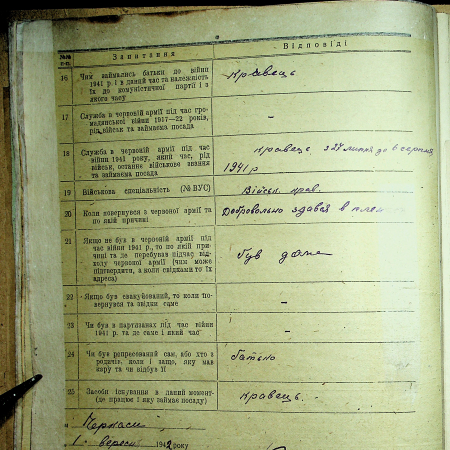 №№ п-п. Запитання Відповіді
16 Чим займались батьки до війни кравець
1941 р. і в даний час та належність
їх до комуністичної партії і з
якого часу
17 Служба в червоній армії під час гро- –
мадянської війни 1917—22 років,
рід військ та займаєма посада
18 Служба в червоній армії під час кравець з 27 липня до 6 серпня
війни 1941 року, який час, рід 1941 р
військ, останнє військове звання
та займаєма посада
19 Військова спеціяльність (№ ВУС) Військ. крав.
20 Коли повернувся з червоної армії та Добровольно здався в плен
по якій причині
21 Якщо не був в червоній армії під був дома
час війни 1941 року, то по якій при-
чині та де перебував підчас від-
ходу червоної армії (чим може
підтвердити, а коли свідками то їх
адреса)
22 Якщо був евакуйований, то коли по- –
вернувся та звідки саме
23 Чи був в партизанах під час війни –
1941 року та де саме і який час
24 Чи був репресований сам, або хто з батько
родичів, коли і защо, яку мав
кару та чи відбув її
25 Засоби існування в даний момент- кравець.
(де працює і яку займає посаду)
м. Черкаси
1. вересня 1942 року